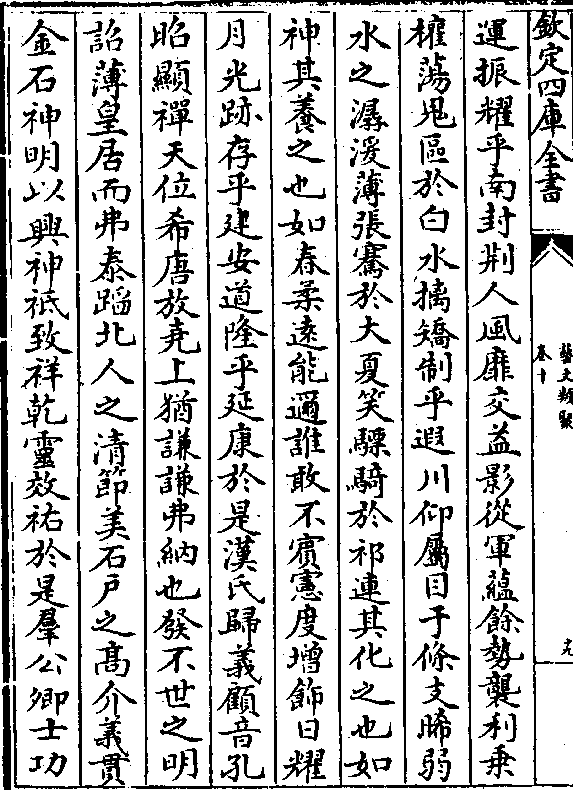 欽定四庫全書
藝文類聚
卷十
運振耀乎南封荆人風靡交益影從軍藴餘勢襲利乗
權蕩鬼區於白水擒矯制乎遐川仰屬目于條支晞弱
水之潺湲薄張騫於大夏笑驃騎於祁連其化之也如
神其養之也如春柔逺能邇誰敢不賔憲度增飾日耀
月光跡存乎建安道隆乎延康於是漢氏歸義顧音孔
昭顯禪天位希唐放堯上猶謙謙弗納也發不世之明
詔薄皇居而弗泰蹈北人之清節美石戶之髙介義貫
金石神明以興神祇致祥乾靈效祐於是羣公卿士功